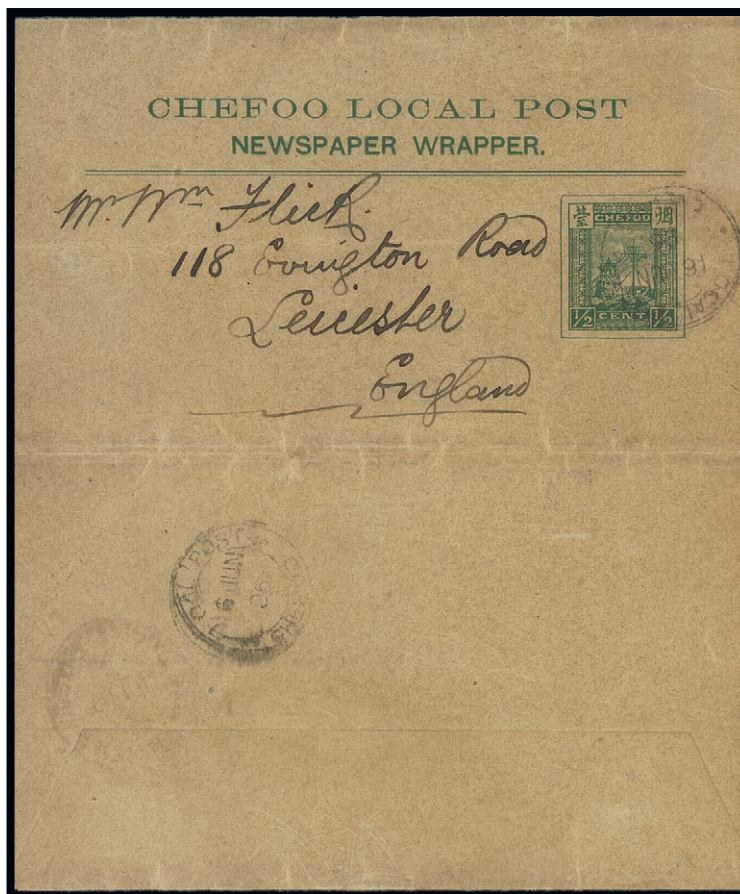 CHEFOO LOCAL POST
NEWSPAPER WRAPPER.
Mr. Wm Flick.
118 Evington Road
Leicester
England
臺 CHEFOO 烟
½ CENT ½
16 JUN
LOCAL POST
16 JUN
96